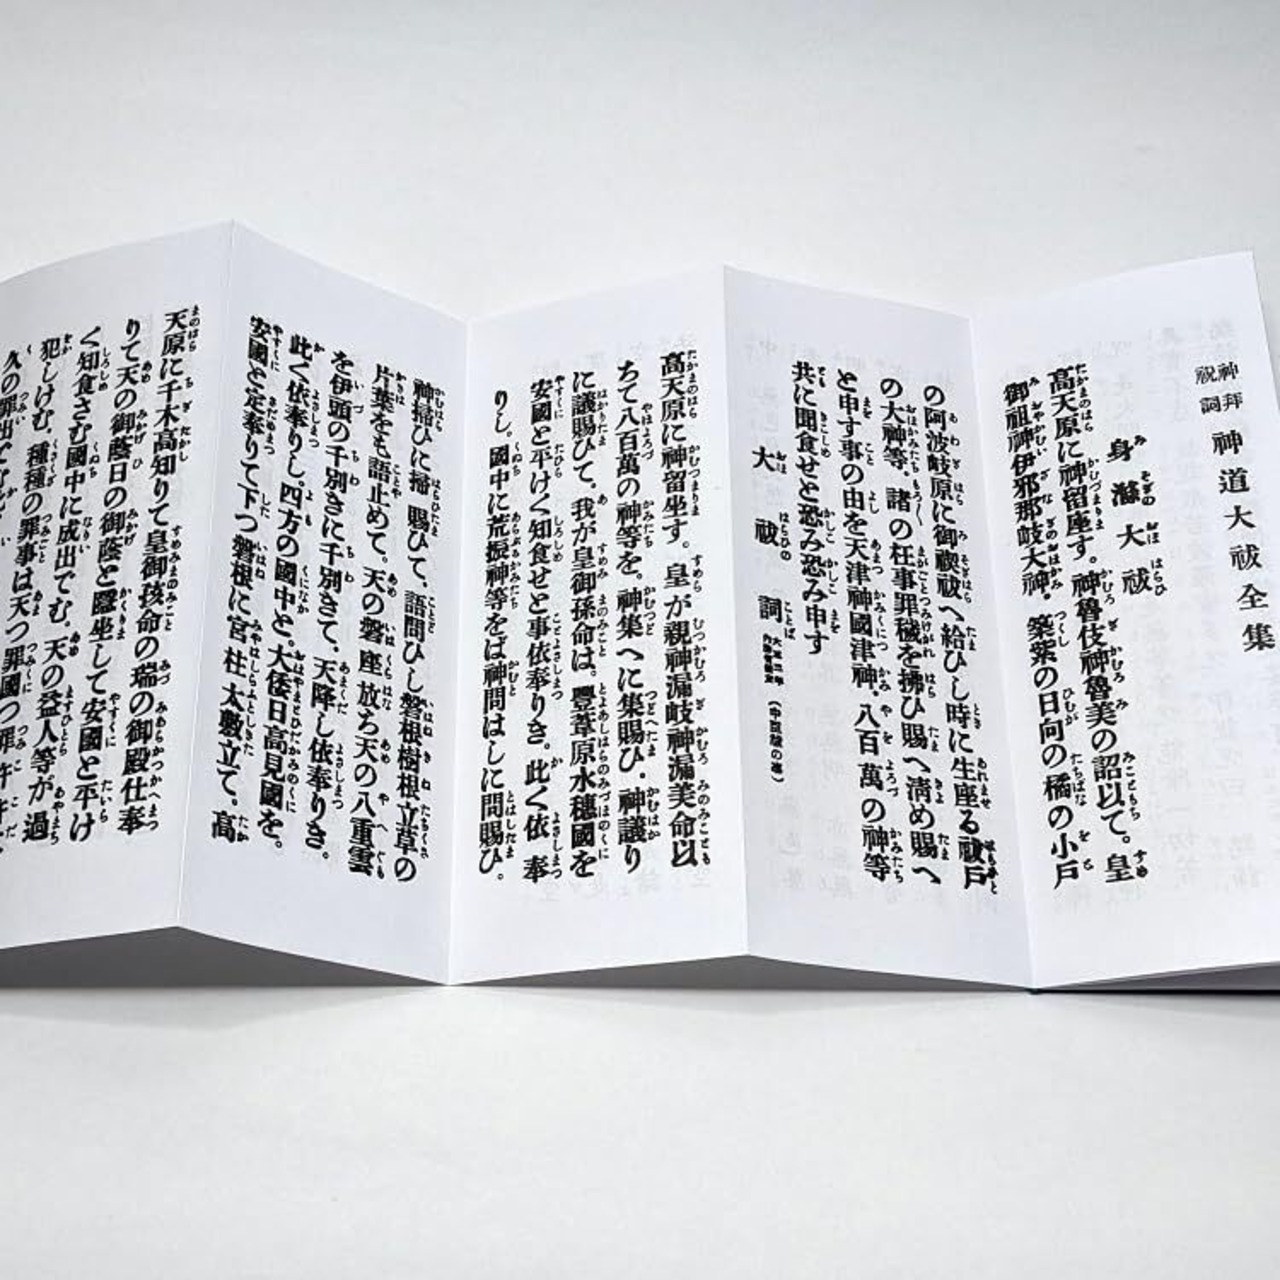 神拝祝詞 神道大祓全集
身滌大祓
高天原に神留座す。神魯伎神魯美の詔以て。皇
御祖神伊邪那岐大神。築紫の日向の橘の小戸
の阿波岐原に御禊祓へ給ひし時に生座る祓戸
の大神等。諸の枉事罪穢を拂ひ賜へ淸め賜へ
と申す事の由を天津神國津神。八百萬の神等
共に聞食せと恐み恐み申す
大祓詞
高天原に神留坐す。皇が親神漏岐神漏美命以
ちて八百萬の神等を。神集へに集賜ひ。神議り
に議賜ひて。我が皇御孫命は。豐葦原水穗國を
安國と平けく知食せと事依奉りき。此く依奉
りし。國中に荒振神等をば神問はしに問賜ひ。
神掃ひに掃賜ひて。語問ひし磐根樹根立草の
片葉をも語止めて。天の磐座放ち天の八重雲
を伊頭の千別きに千別きて。天降し依奉りき。
此く依奉りし。四方の國中と。大倭日高見國を。
安國と定奉りて下つ磐根に宮柱太敷立て。高
天原に千木高知りて皇御孩命の瑞の御殿仕奉
りて天の御蔭日の御蔭と隱坐して安國と平け
く知食さむ國中に成出でむ。天の益人等が過
犯しけむ。種種の罪事は天つ罪國つ罪
久の罪出でむ